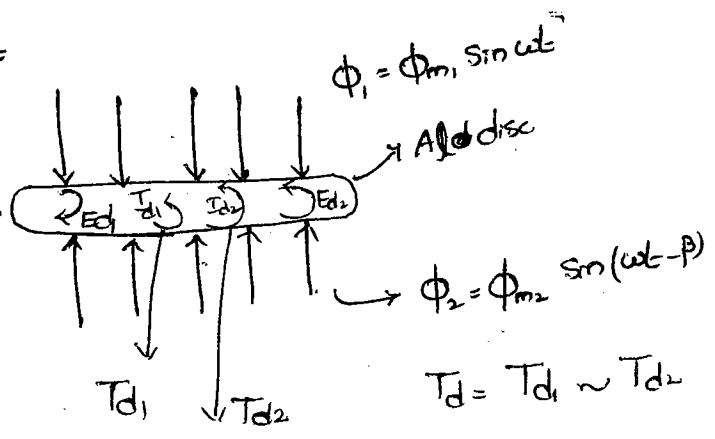 =
ϕ₁ = ϕm₁ sin ωt
Al disc
Ed₁ Id₁ Id₂ Ed₂
ϕ₂ = ϕm₂ sin(ωt-β)
Td₁ Td₂
Td = Td₁ ~ Td₂